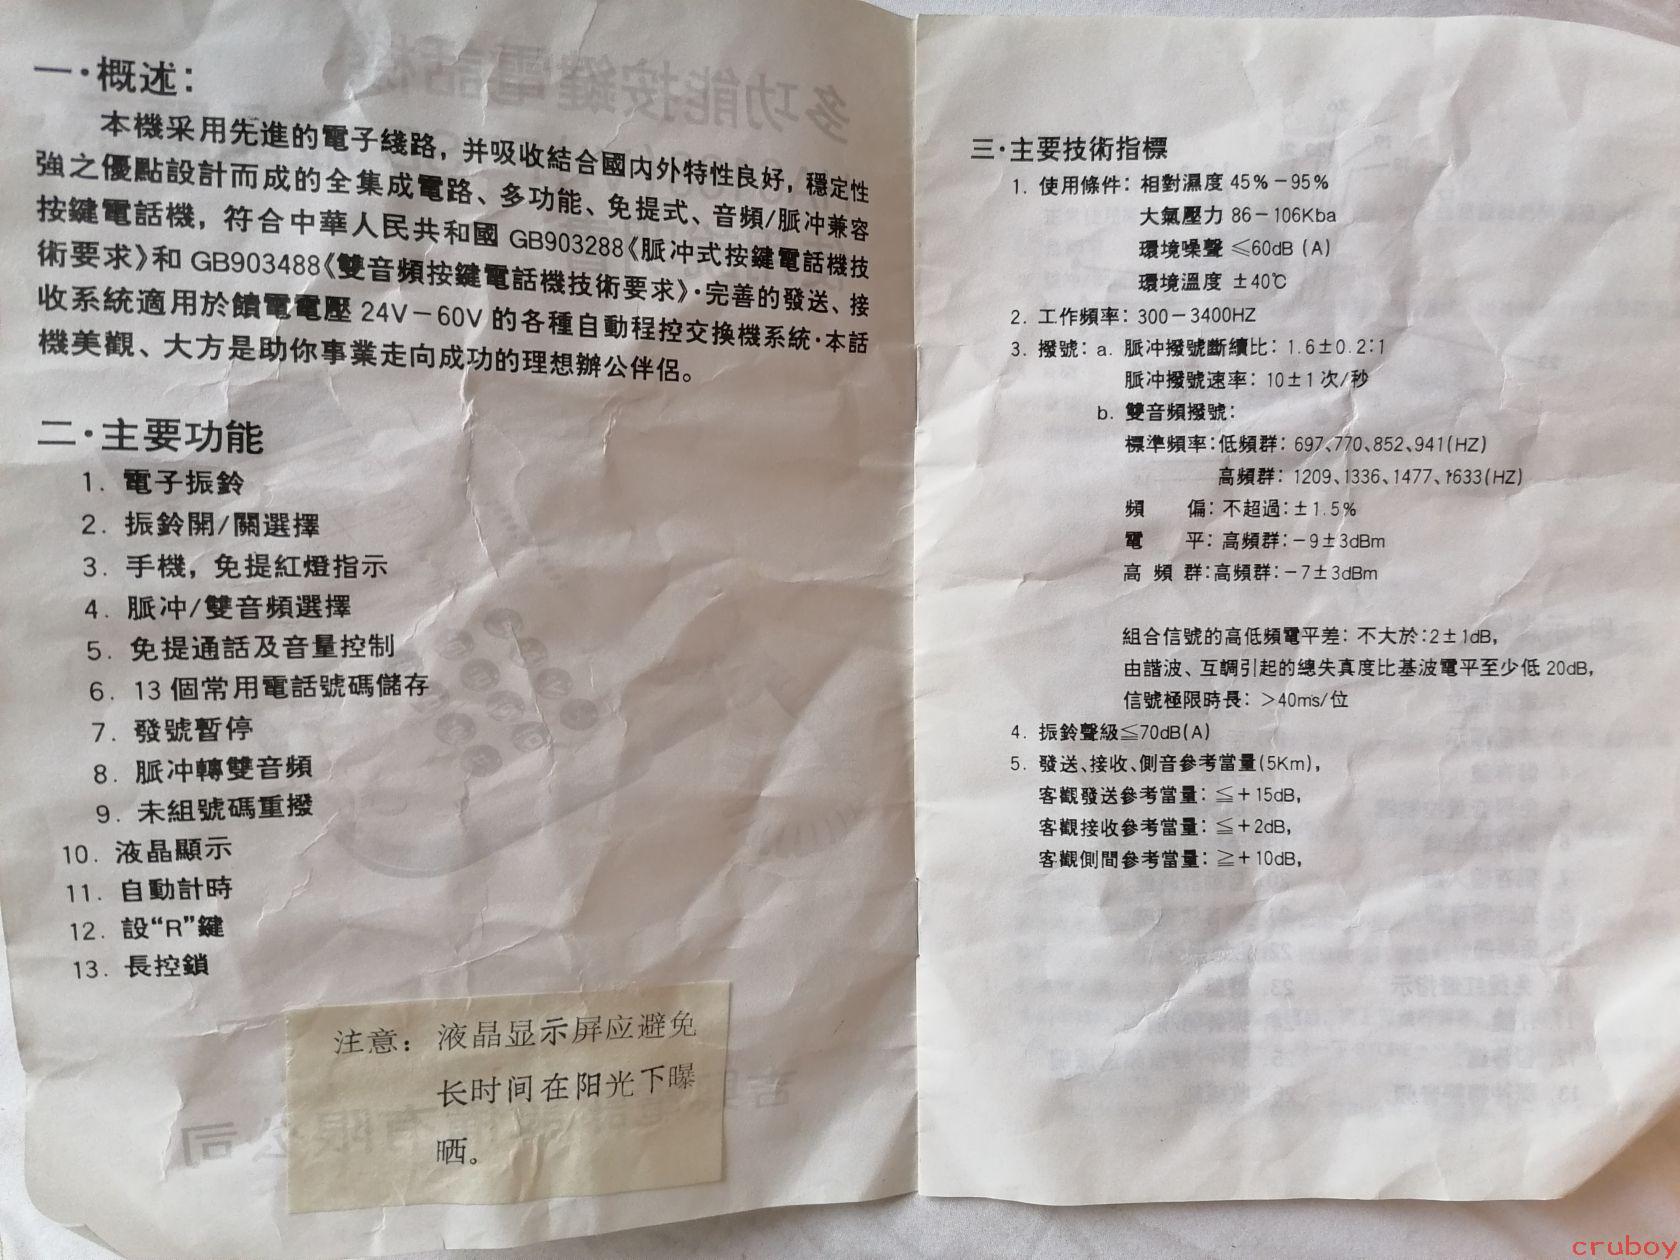 一·概述：
本機采用先進的電子綫路，并吸收結合國内外特性良好，穩定性
強之優點設計而成的全集成電路、多功能、免提式、音頻/脈冲兼容
按鍵電話機，符合中華人民共和國 GB903288《脈冲式按鍵電話機技
術要求》和 GB903488《雙音頻按鍵電話機技術要求》·完善的發送、接
收系統適用於饋電電壓 24V－60V 的各種自動程控交換機系統·本話
機美觀、大方是助你事業走向成功的理想辦公伴侶。
二·主要功能
1. 電子振鈴
2. 振鈴開/關選擇
3. 手機，免提紅燈指示
4. 脈冲/雙音頻選擇
5. 免提通話及音量控制
6. 13 個常用電話號碼儲存
7. 發號暫停
8. 脈冲轉雙音頻
9. 未組號碼重撥
10. 液晶顯示
11. 自動計時
12. 設“R”鍵
13. 長控鎖
注意：液晶显示屏应避免
长时间在阳光下曝
晒。
三·主要技術指標
1. 使用條件：相對濕度 45%－95%
大氣壓力 86－106Kba
環境噪聲 ≦60dB (A)
環境溫度 ±40℃
2. 工作頻率：300－3400HZ
3. 撥號：a. 脈冲撥號斷續比：1.6±0.2:1
脈冲撥號速率：10±1 次/秒
b. 雙音頻撥號：
標準頻率：低頻群：697、770、852、941(HZ)
高頻群：1209、1336、1477、1633(HZ)
頻 偏：不超過：±1.5%
電 平：高頻群：－9±3dBm
高 頻 群：高頻群：－7±3dBm
組合信號的高低頻電平差：不大於：2±1dB，
由諧波、互調引起的總失真度比基波電平至少低 20dB，
信號極限時長：＞40ms/位
4. 振鈴聲級≦70dB(A)
5. 發送、接收、側音參考當量(5Km)，
客觀發送參考當量：≦＋15dB，
客觀接收參考當量：≦＋2dB，
客觀側間參考當量：≧＋10dB，
cruboy